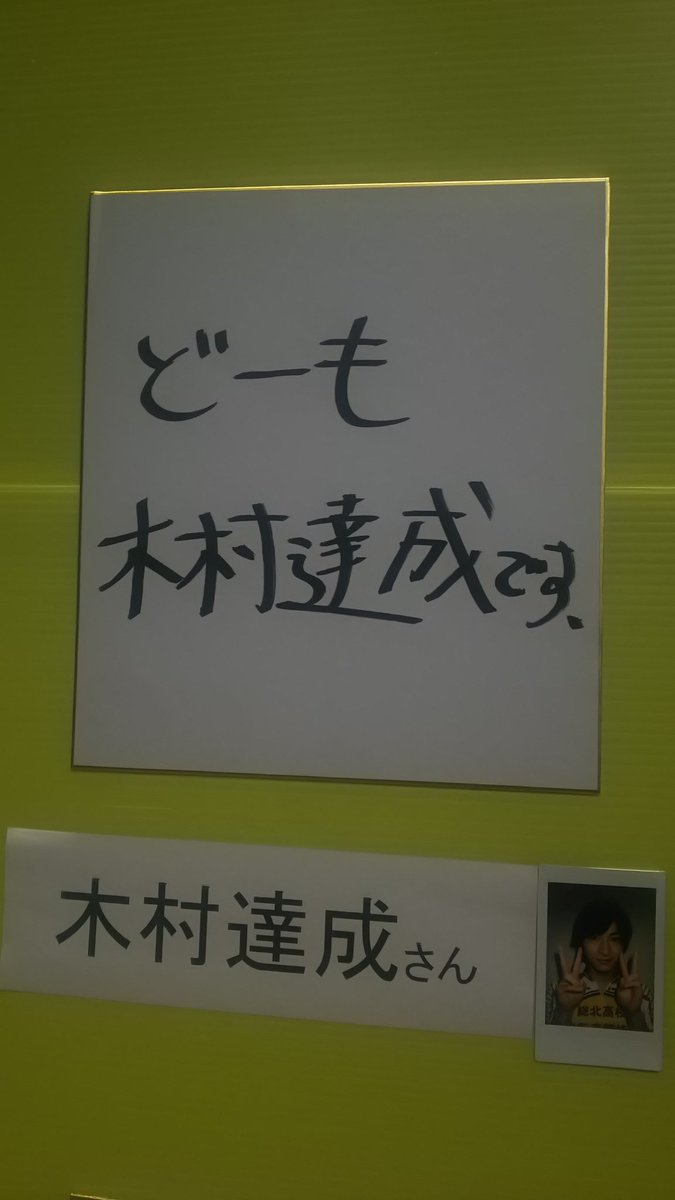 どーも
木村達成です、
木村達成さん
総北高校